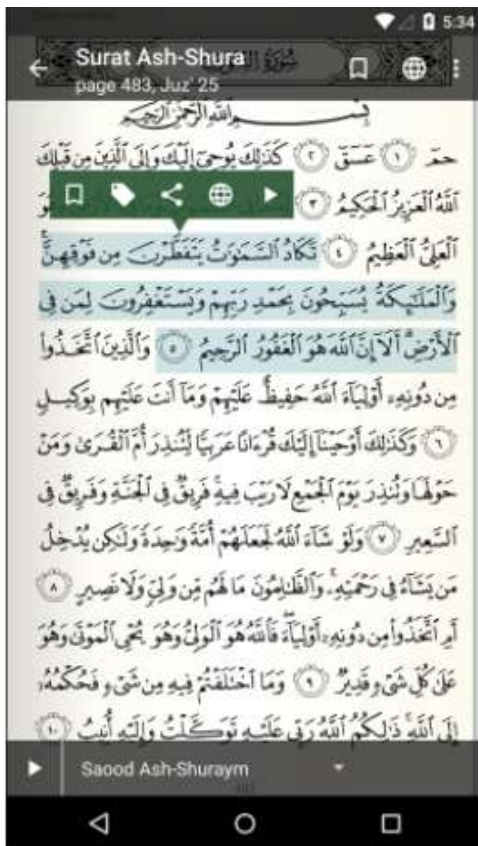 5:34
Surat Ash-Shura
page 483, Juz' 25
بِسْمِ اللَّهِ الرَّحْمَٰنِ الرَّحِيمِ
حمٓ ١ عٓسٓقٓ ٢ كَذَٰلِكَ يُوحِىٓ إِلَيْكَ وَإِلَى ٱلَّذِينَ مِن قَبْلِكَ
ٱللَّهُ ٱلْعَزِيزُ ٱلْحَكِيمُ ٣
ٱلْعَلِىُّ ٱلْعَظِيمُ ٤ تَكَادُ ٱلسَّمَٰوَٰتُ يَتَفَطَّرْنَ مِن فَوْقِهِنَّ ۚ
وَٱلْمَلَٰٓئِكَةُ يُسَبِّحُونَ بِحَمْدِ رَبِّهِمْ وَيَسْتَغْفِرُونَ لِمَن فِى
ٱلْأَرْضِ ۗ أَلَآ إِنَّ ٱللَّهَ هُوَ ٱلْغَفُورُ ٱلرَّحِيمُ ٥ وَٱلَّذِينَ ٱتَّخَذُوا۟
مِن دُونِهِۦٓ أَوْلِيَآءَ ٱللَّهُ حَفِيظٌ عَلَيْهِمْ وَمَآ أَنتَ عَلَيْهِم بِوَكِيلٍ
٦ وَكَذَٰلِكَ أَوْحَيْنَآ إِلَيْكَ قُرْءَانًا عَرَبِيًّا لِّتُنذِرَ أُمَّ ٱلْقُرَىٰ وَمَنْ
حَوْلَهَا وَتُنذِرَ يَوْمَ ٱلْجَمْعِ لَا رَيْبَ فِيهِ ۚ فَرِيقٌ فِى ٱلْجَنَّةِ وَفَرِيقٌ فِى
ٱلسَّعِيرِ ٧ وَلَوْ شَآءَ ٱللَّهُ لَجَعَلَهُمْ أُمَّةً وَٰحِدَةً وَلَٰكِن يُدْخِلُ
مَن يَشَآءُ فِى رَحْمَتِهِۦ ۚ وَٱلظَّٰلِمُونَ مَا لَهُم مِّن وَلِىٍّ وَلَا نَصِيرٍ ٨
أَمِ ٱتَّخَذُوا۟ مِن دُونِهِۦٓ أَوْلِيَآءَ ۖ فَٱللَّهُ هُوَ ٱلْوَلِىُّ وَهُوَ يُحْىِ ٱلْمَوْتَىٰ وَهُوَ
عَلَىٰ كُلِّ شَىْءٍ قَدِيرٌ ٩ وَمَا ٱخْتَلَفْتُمْ فِيهِ مِن شَىْءٍ فَحُكْمُهُۥٓ
إِلَى ٱللَّهِ ۚ ذَٰلِكُمُ ٱللَّهُ رَبِّى عَلَيْهِ تَوَكَّلْتُ وَإِلَيْهِ أُنِيبُ ١٠
Saood Ash-Shuraym